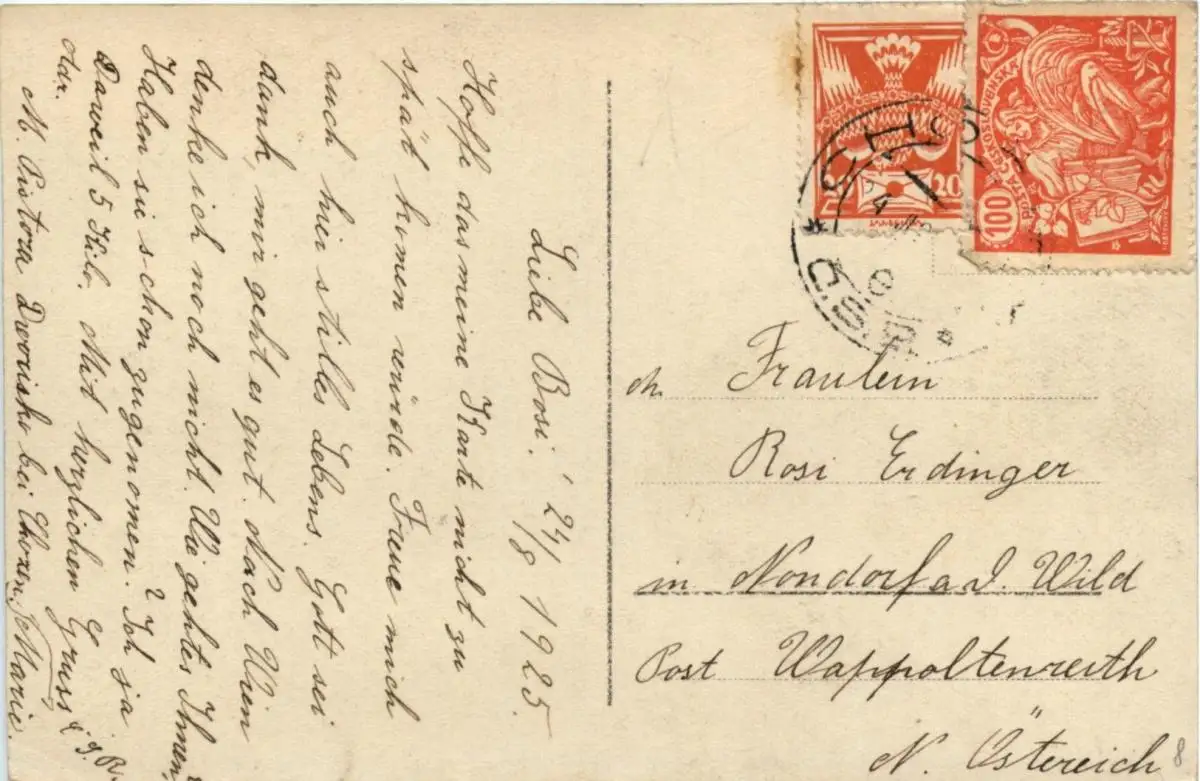 Liebe Rosi! 24/8 1925.
Hoffe das meine Karte nicht zu
spät komen würde. Freue mich
auch hir stilles Lebens. Gott sei
dank, mir geht es gut. Nach Wien
denke ich noch nicht. Wie geht es Ihnen,
Haben sie schon zugenomen? Ich ja
Daweil 5 Kilo. Mit herzlichen Gruss
Marie.
M. Pistora Dvorisku bei Chozen
Fraulein
Rosi Erdinger
in Nondorf a d. Wild
Post Wappoltenreith
N. Östereich
8
20
100
POŠTA ČESKOSLOVENSKÁ
Č.S.R.